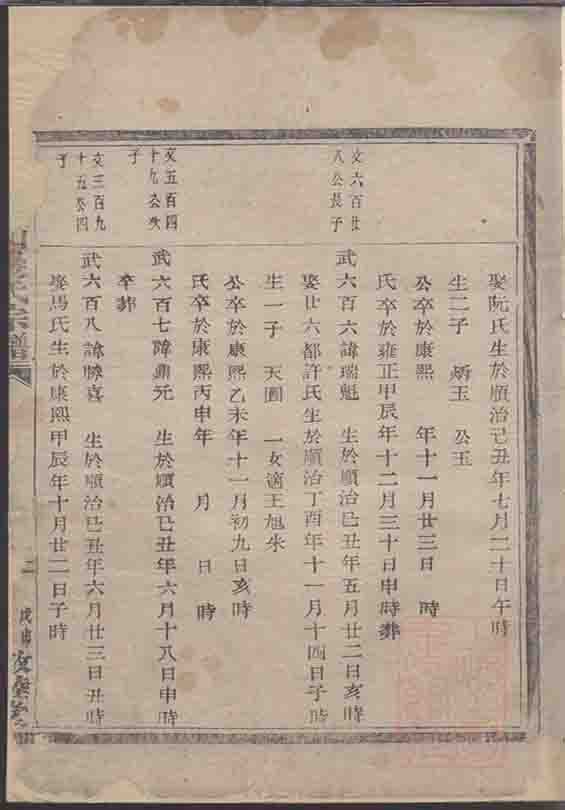 娶阮氏生於順治己丑年七月二十日午時
生二子　炳玉　公玉
公卒於康熙　年十一月廿三日　時
氏卒於雍正甲辰年十二月三十日申時葬
文六百廿
八公長子
武六百六諱瑞魁　生於順治己丑年五月廿二日亥時
娶廿六都許氏生於順治丁酉年十一月十四日子時
生一子　天圓　一女適王旭
公卒於康熙乙未年十一月初九日亥時
氏卒於康熙丙申年　月　日　時
文五百四
十九公次
子
武六百七諱鼎元　生於順治己丑年六月十八日申時
卒葬
文三百九
十五公四
子
武六百八諱勝喜　生於順治己丑年六月廿三日丑時
娶馬氏生於康熙甲辰年十月廿二日子時
氏宗譜
二